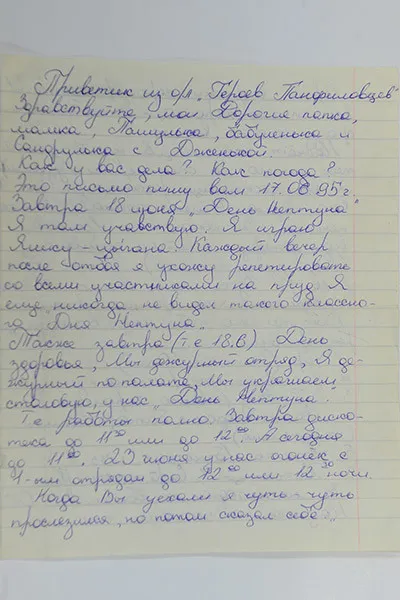 Приветик из о/л „Героев Панфиловцев"
Здравствуйте, мои Дорогие папка,
мамка, Памулька, бабуленька и
Сандрулька с Дженькой.
Как у вас дела? Как погода?
Это письмо пишу вам 17.06 95 г.
Завтра 18 июня „День Нептуна"
Я там учавствую. Я играю
Яшку - цыгана. Каждый вечер
после отбоя я ухожу репетировать
со всеми участниками на пруд. Я
ещё никогда не видел такого классно-
го Дня Нептуна.
Также завтра (т е 18.6) День
здоровья, Мы дежурный отряд, Я де-
журный по палате, Мы украшаем
столовую, у нас „День Нептуна".
Т е работы полно. Завтра диско-
тека до 11³⁰ или до 12⁰⁰. А сегодня
до 11⁰⁰. 23 июня у нас огонёк с
1-ым отрядом до 12⁰⁰ или 12³⁰ ночи.
Когда Вы уехали я чуть-чуть
прослезился, но потом сказал себе:„